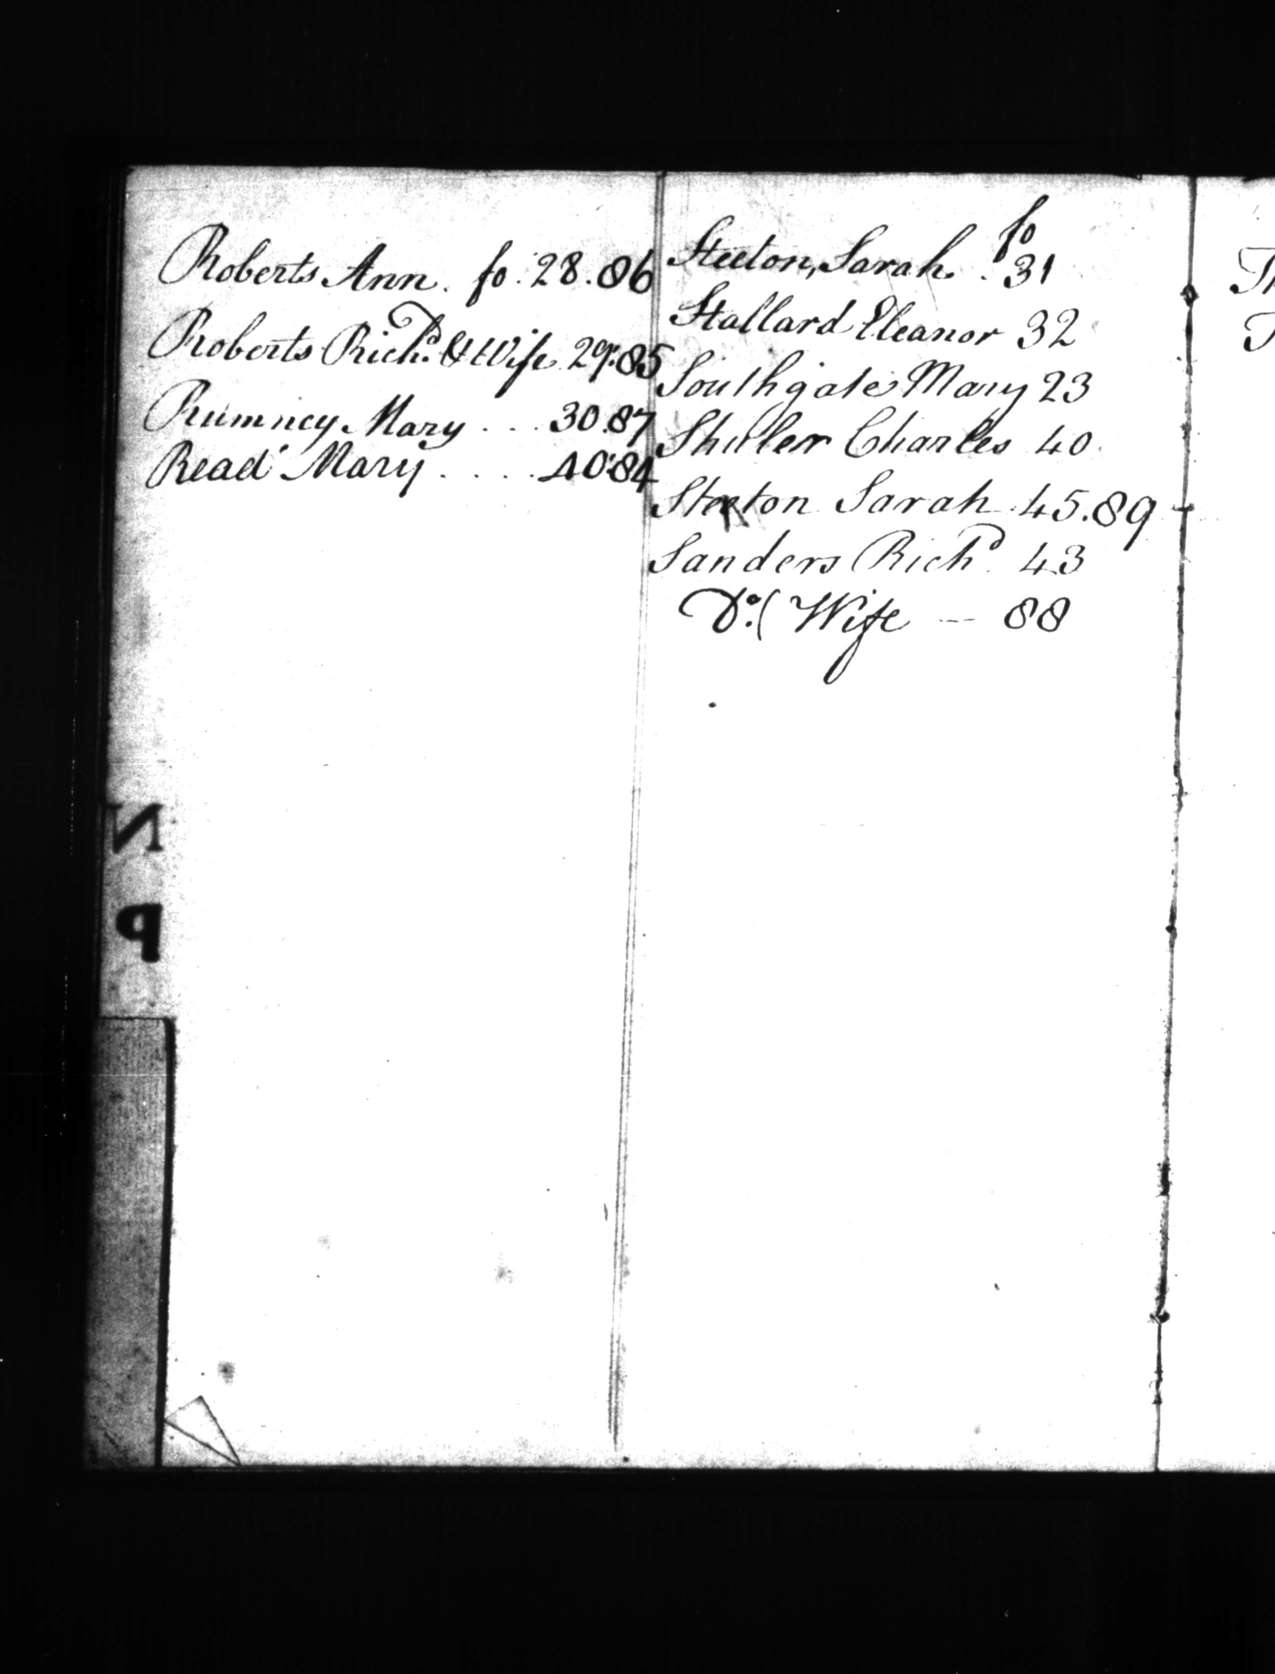 Roberts Ann. fo. 28.86
Roberts Richd. & Wife 29.85
Rumney Mary ... 30.87
Read Mary .... 40.84
N
P
fo
Steeton, Sarah . 31
Stallard Eleanor 32
Southgate Mary 23
Shuler Charles 40.
Steeton Sarah . 45.89
Sanders Richd. 43
Do. ( Wife — 88